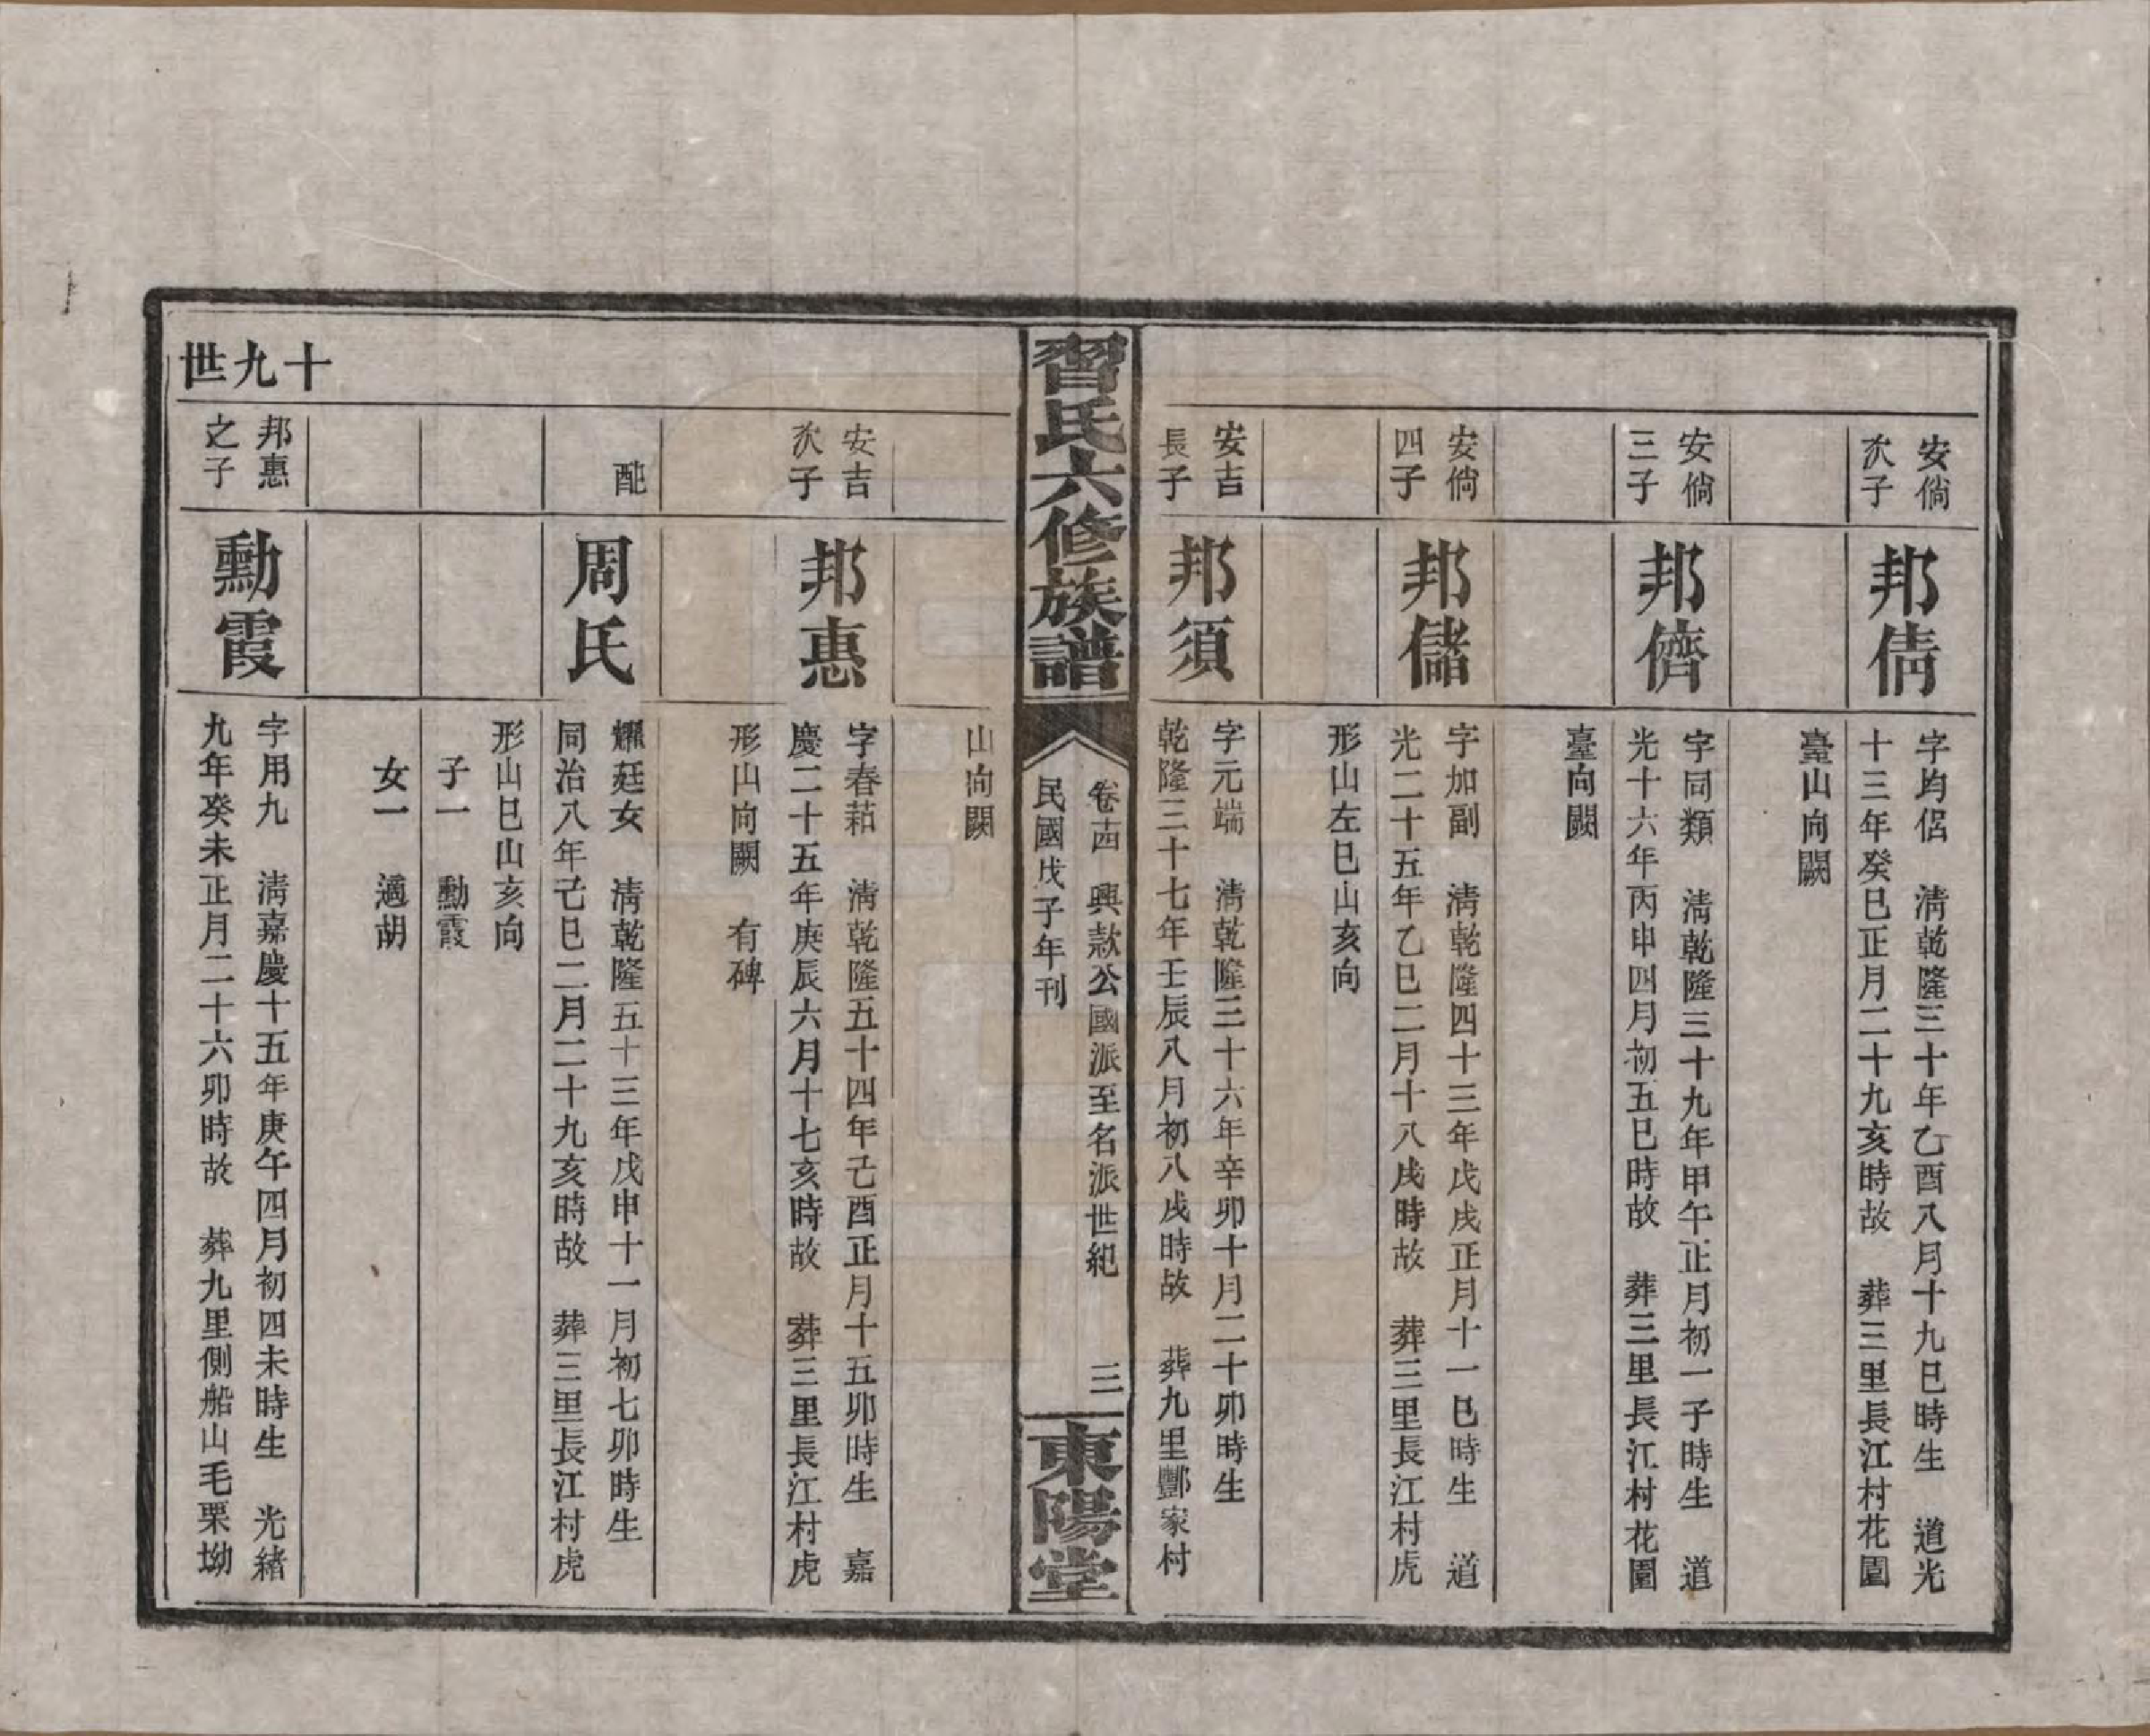 安倘
次子
邦倩
字均侶　清乾隆三十年乙酉八月十九巳時生　道光
十三年癸巳正月二十九亥時故　葬三里長江村花園
臺山向闕
安倘
三子
邦儕
字同類　清乾隆三十九年甲午正月初一子時生　道
光十六年丙申四月初五巳時故　葬三里長江村花園
臺向闕
安倘
四子
邦儲
字加副　清乾隆四十三年戊戌正月十一巳時生　道
光二十五年乙巳二月十八戌時故　葬三里長江村虎
形山左巳山亥向
安吉
長子
邦須
字元端　清乾隆三十六年辛卯十月二十卯時生
乾隆三十七年壬辰八月初八戌時故　葬九里酆家村
習氏六修族譜
卷十四　興款公國派至名派世紀　三
民國戊子年刊
東陽堂
山向闕
安吉
次子
邦惠
字春萂　清乾隆五十四年己酉正月十五卯時生　嘉
慶二十五年庚辰六月十七亥時故　葬三里長江村虎
形山向闕　有碑
配
周氏
耀廷女　清乾隆五十三年戊申十一月初七卯時生
同治八年己巳二月二十九亥時故　葬三里長江村虎
形山巳山亥向
子一　勳霞
女一　適胡
十九世
邦惠
之子
勳霞
字用九　清嘉慶十五年庚午四月初四未時生　光緒
九年癸未正月二十六卯時故　葬九里側船山毛栗坳